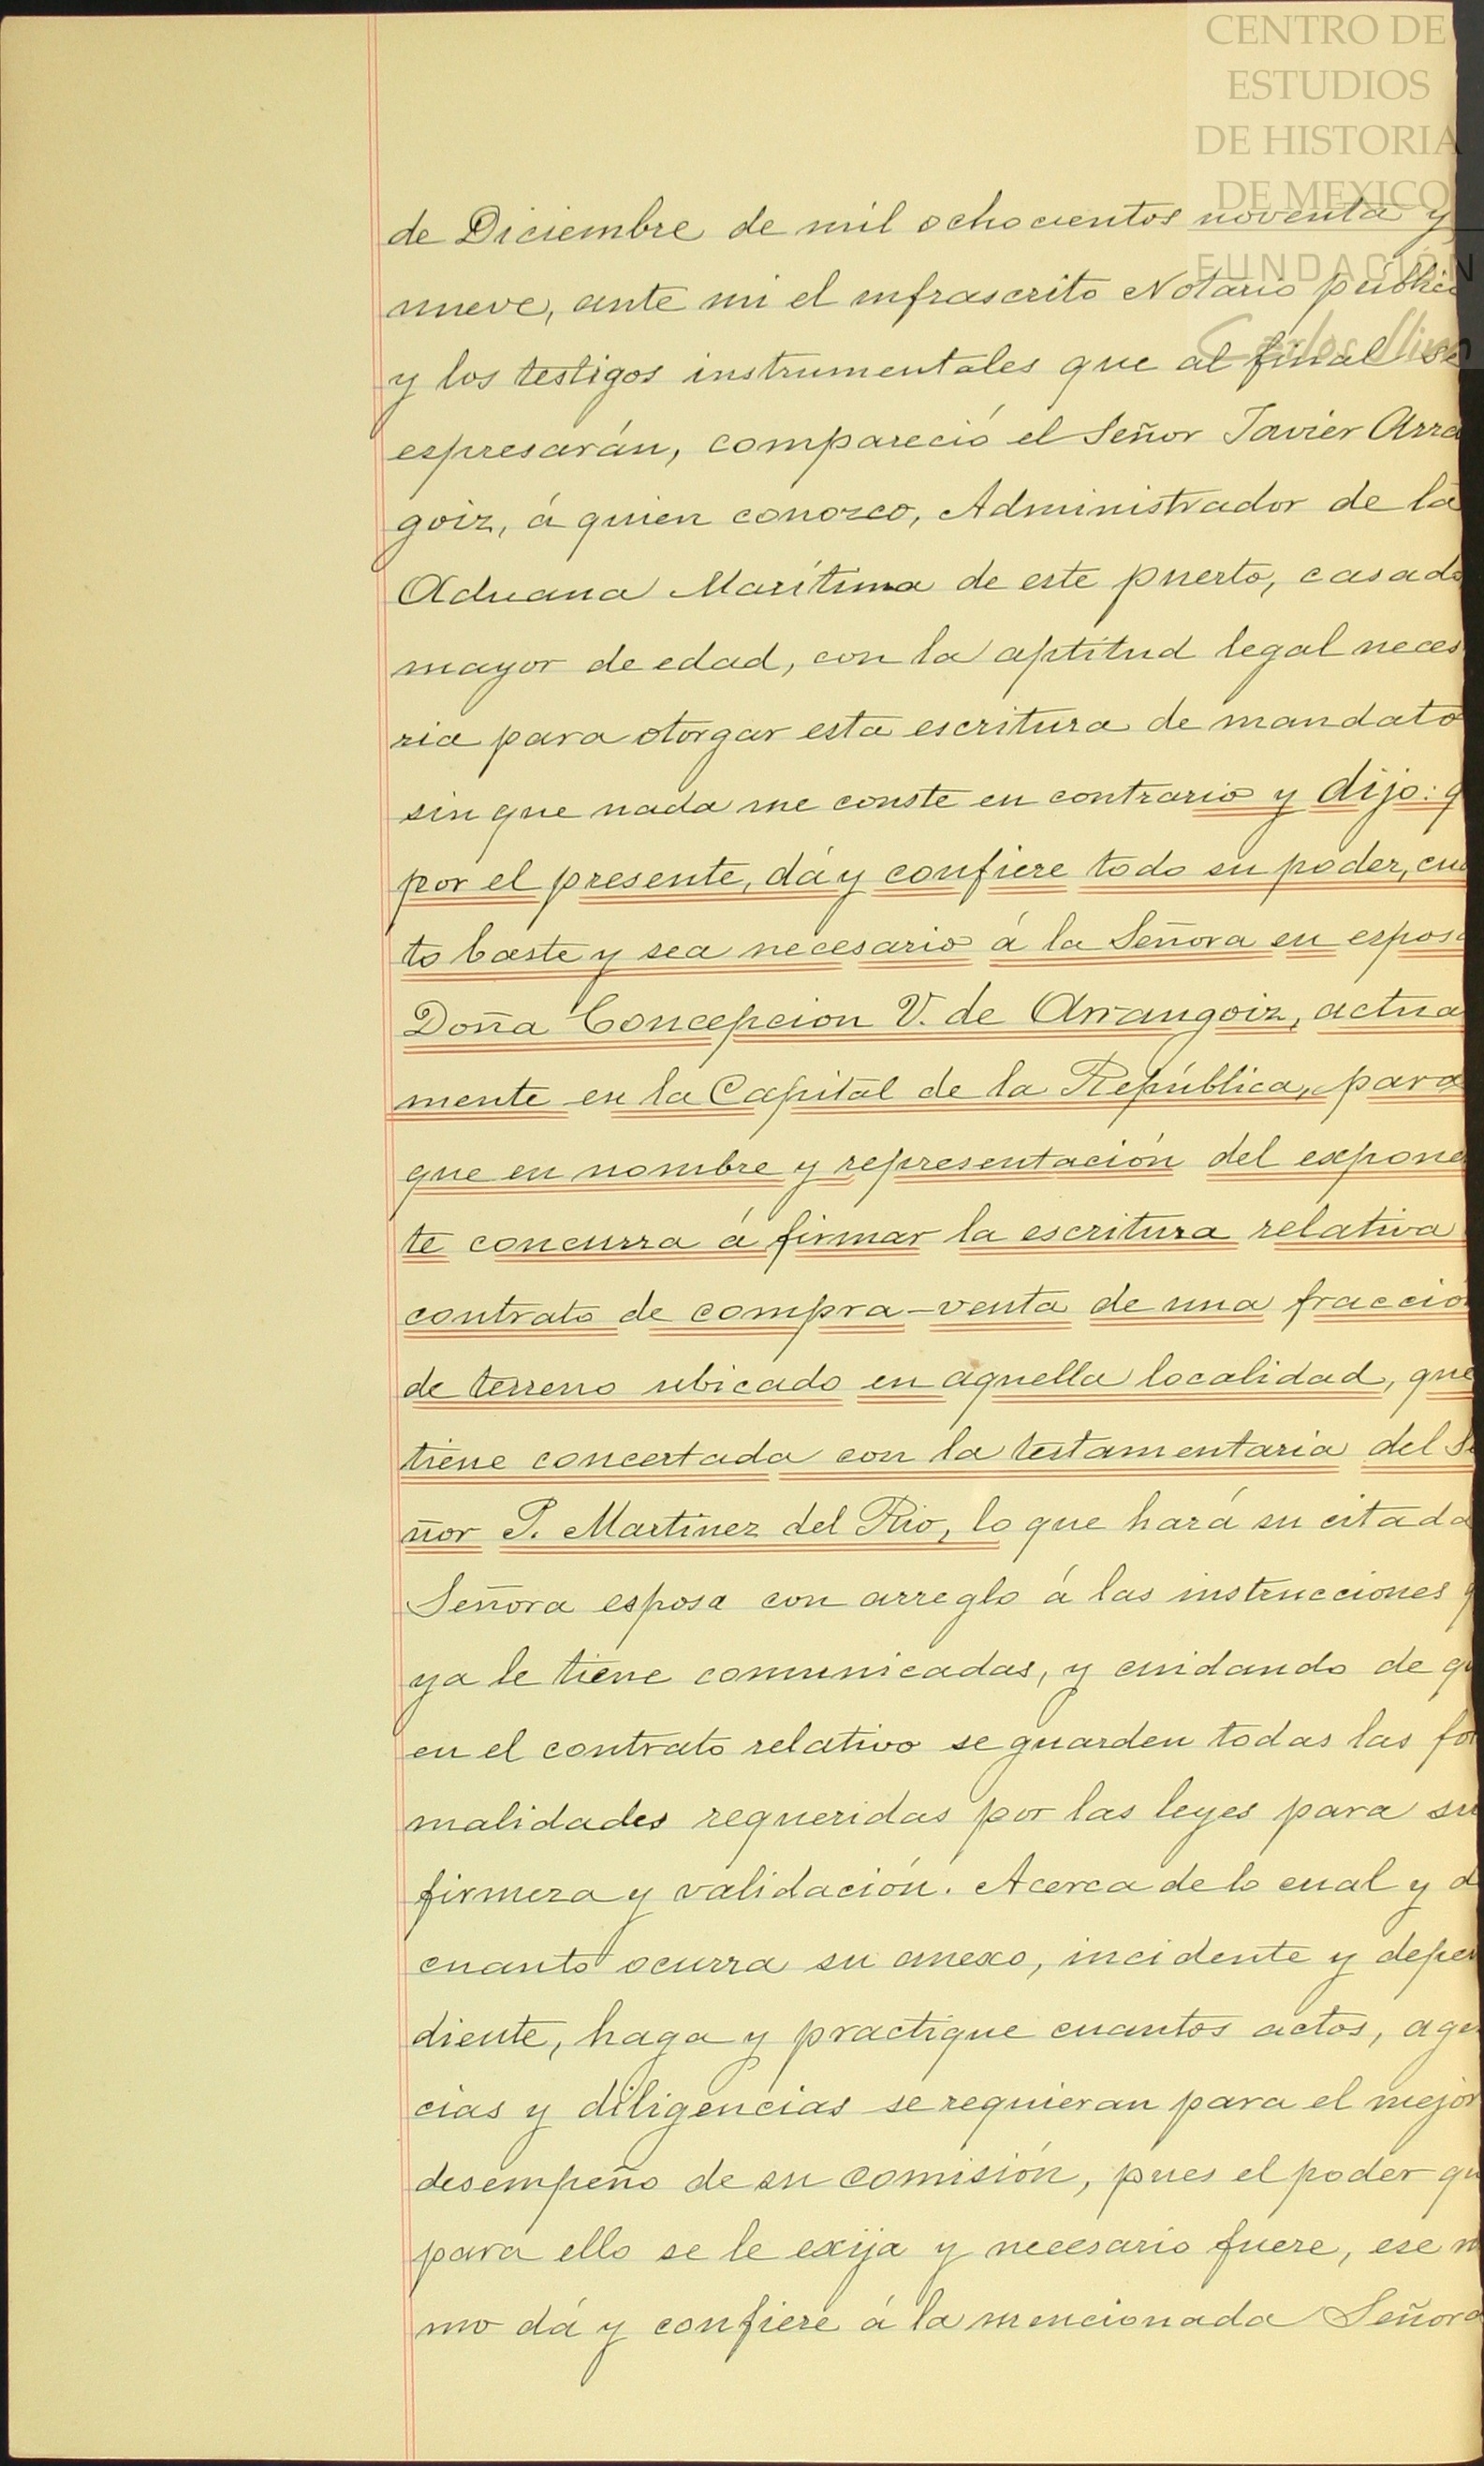 CENTRO DE
ESTUDIOS
DE HISTORIA
DE MEXICO
FUNDACIÓN
Carlos Slim
de Diciembre de mil ochocientos noventa y
nueve, ante mi el infrascrito Notario públic
y los testigos instrumentales que al final se
espresarán, compareció el Señor Javier Arra
goiz, á quien conozco, Administrador de la
Aduana Marítima de este puerto, casado
mayor de edad, con la aptitud legal neces
ria para otorgar esta escritura de mandato
sin que nada me conste en contrario y dijo: q
por el presente, dá y confiere todo su poder, cua
to baste y sea necesario á la Señora su esposa
Doña Concepcion V. de Arrangoiz, actua
mente en la Capital de la República, para
que en nombre y representación del expone
te concurra á firmar la escritura relativa
contrato de compra-venta de una fracció
de terreno ubicado en aquella localidad, que
tiene concertada con la testamentaria del Se
ñor P. Martinez del Rio, lo que hará su citada
Señora esposa con arreglo á las instrucciones q
ya le tiene comunicadas, y cuidando de qu
en el contrato relativo se guarden todas las for
malidades requeridas por las leyes para su
firmeza y validación. Acerca de lo cual y d
cuanto ocurra su anexo, incidente y depen
diente, haga y practique cuantos actos, agen
cias y diligencias se requieran para el mejor
desempeño de su comisión, pues el poder qu
para ello se le exija y necesario fuere, ese m
mo dá y confiere á la mencionada Señora